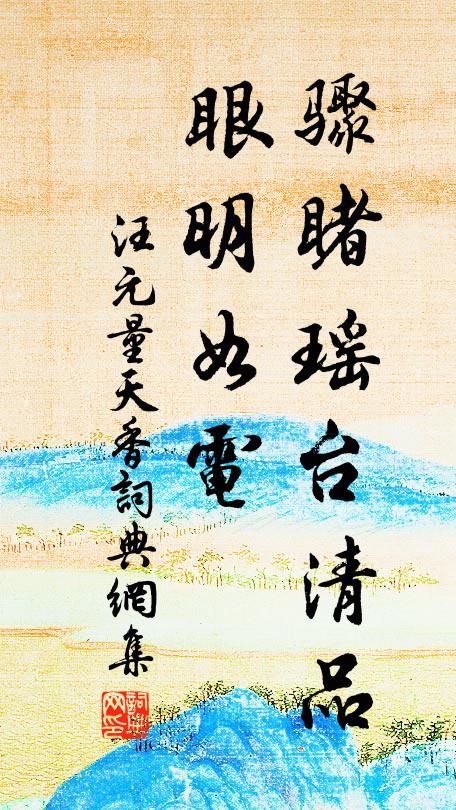 骤睹瑶台清品
眼明如電
汪元量天香詞典網集